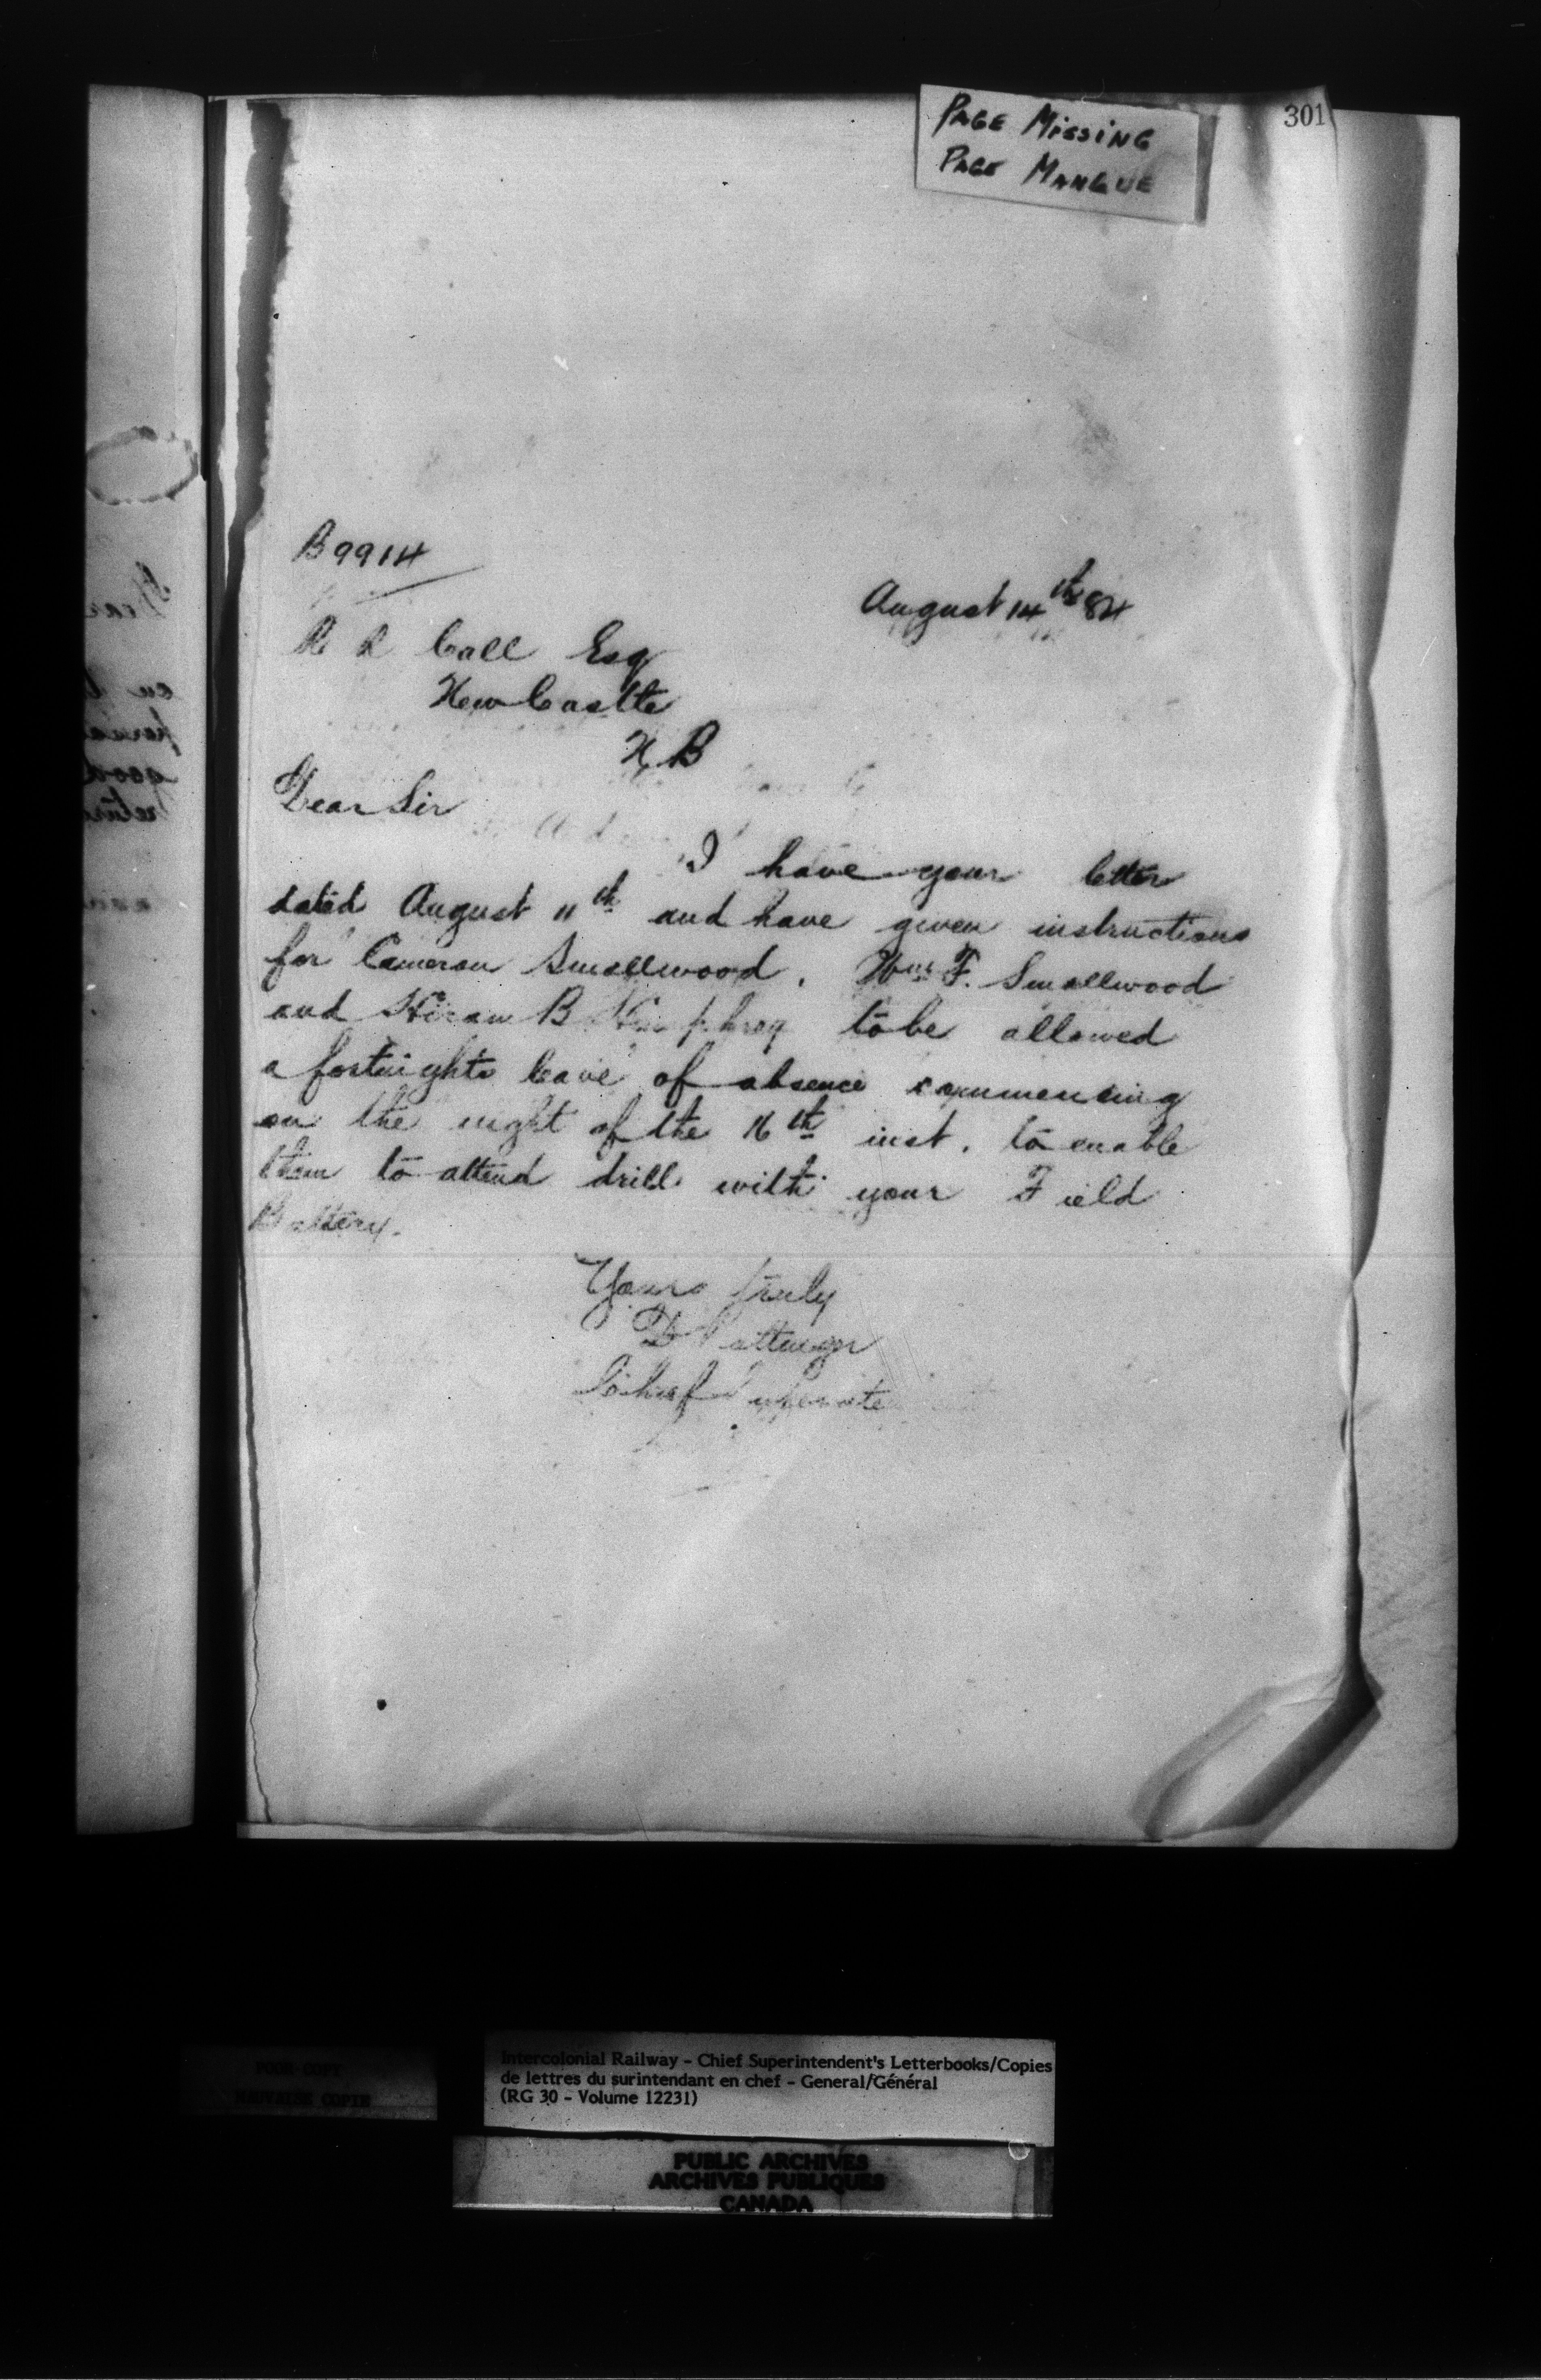 301
PAGE MISSING
PAGE MANQUE
B9914
August 14th 84
R R Call Esq
NewCastle
N.B
Dear Sir
I have your letter
dated August 11th and have given instructions
for Cameron Smallwood, Wm F. Smallwood
and Hiram B Humphrey to be allowed
a fortnights leave of absence commencing
on the night of the 16th inst. to enable
them to attend drill with your Field
Battery.
Yours truly
D Pottinger
Chief Superinte
POOR COPY
MAUVAISE COPIE
Intercolonial Railway - Chief Superintendent's Letterbooks/Copies
de lettres du surintendant en chef - General/Général
(RG 30 - Volume 12231)
PUBLIC ARCHIVES
ARCHIVES PUBLIQUES
CANADA